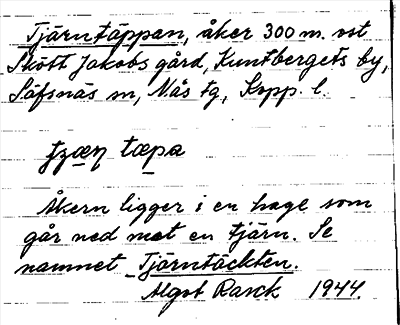 Tjärntäppan, åker 300 m. ost
Skott Jakobs gård, Kuntbergets by,
Säfsnäs sn, Näs tg, Kopp. l.
tæpa
Åkern ligger i en hage som
går ned mot en tjärn. Se
namnet Tjärntäckten.
Algot Rasck 1944.